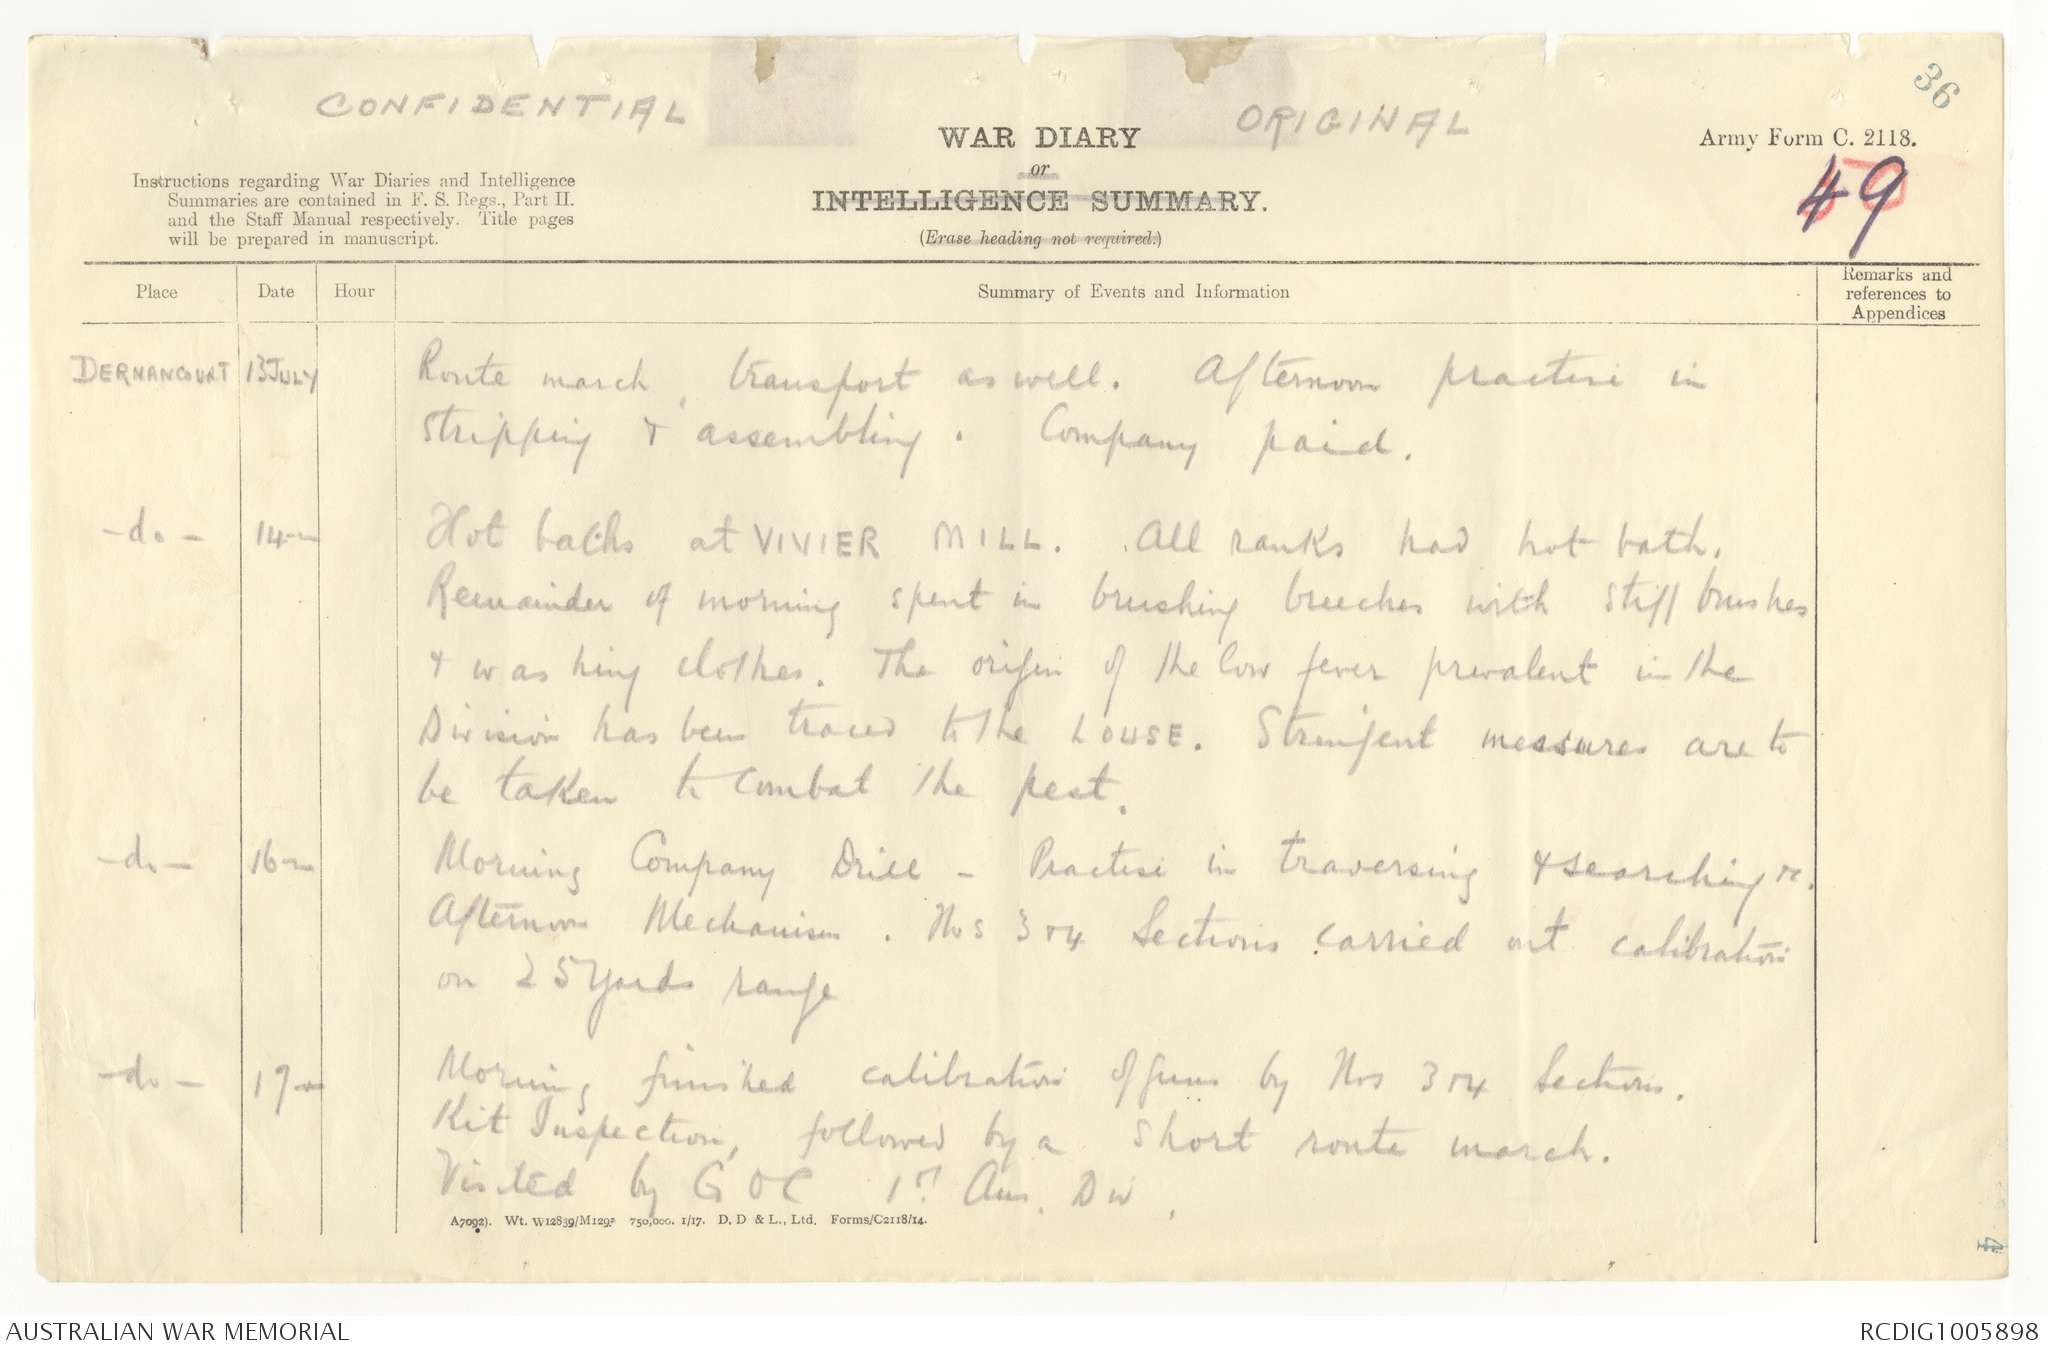 36
CONFIDENTIAL
ORIGINAL
WAR DIARY
or
INTELLIGENCE SUMMARY.
(Erase heading not required.)
Army Form C. 2118.
49
Instructions regarding War Diaries and Intelligence
Summaries are contained in F. S. Regs., Part II.
and the Staff Manual respectively. Title pages
will be prepared in manuscript.
Place Date Hour Summary of Events and Information Remarks and references to Appendices
DERNANCOURT 13 JULY Route march, transport as well. Afternoon practise in
stripping & assembling. Company paid.
-do- 14 Hot baths at VIVIER MILL. All ranks had hot bath.
Remainder of morning spent in brushing breeches with stiff brushes
& washing clothes. The origin of the low fever prevalent in the
Division has been traced to the LOUSE. Stringent measures are to
be taken to combat the pest.
-do- 16 Morning Company Drill - Practise in traversing & searching &c.
Afternoon Mechanism. Nos 3 & 4 Sections carried out calibration
on 25 Yards range
-do- 17 Morning finished calibration of guns by Nos 3 & 4 Sections.
Kit Inspection, followed by a short route march.
Visited by G O C 1st Aus. Div.
A7092). Wt. W12839/M1295 750,000. 1/17. D. D & L., Ltd. Forms/C2118/14.
4
AUSTRALIAN WAR MEMORIAL
RCDIG1005898